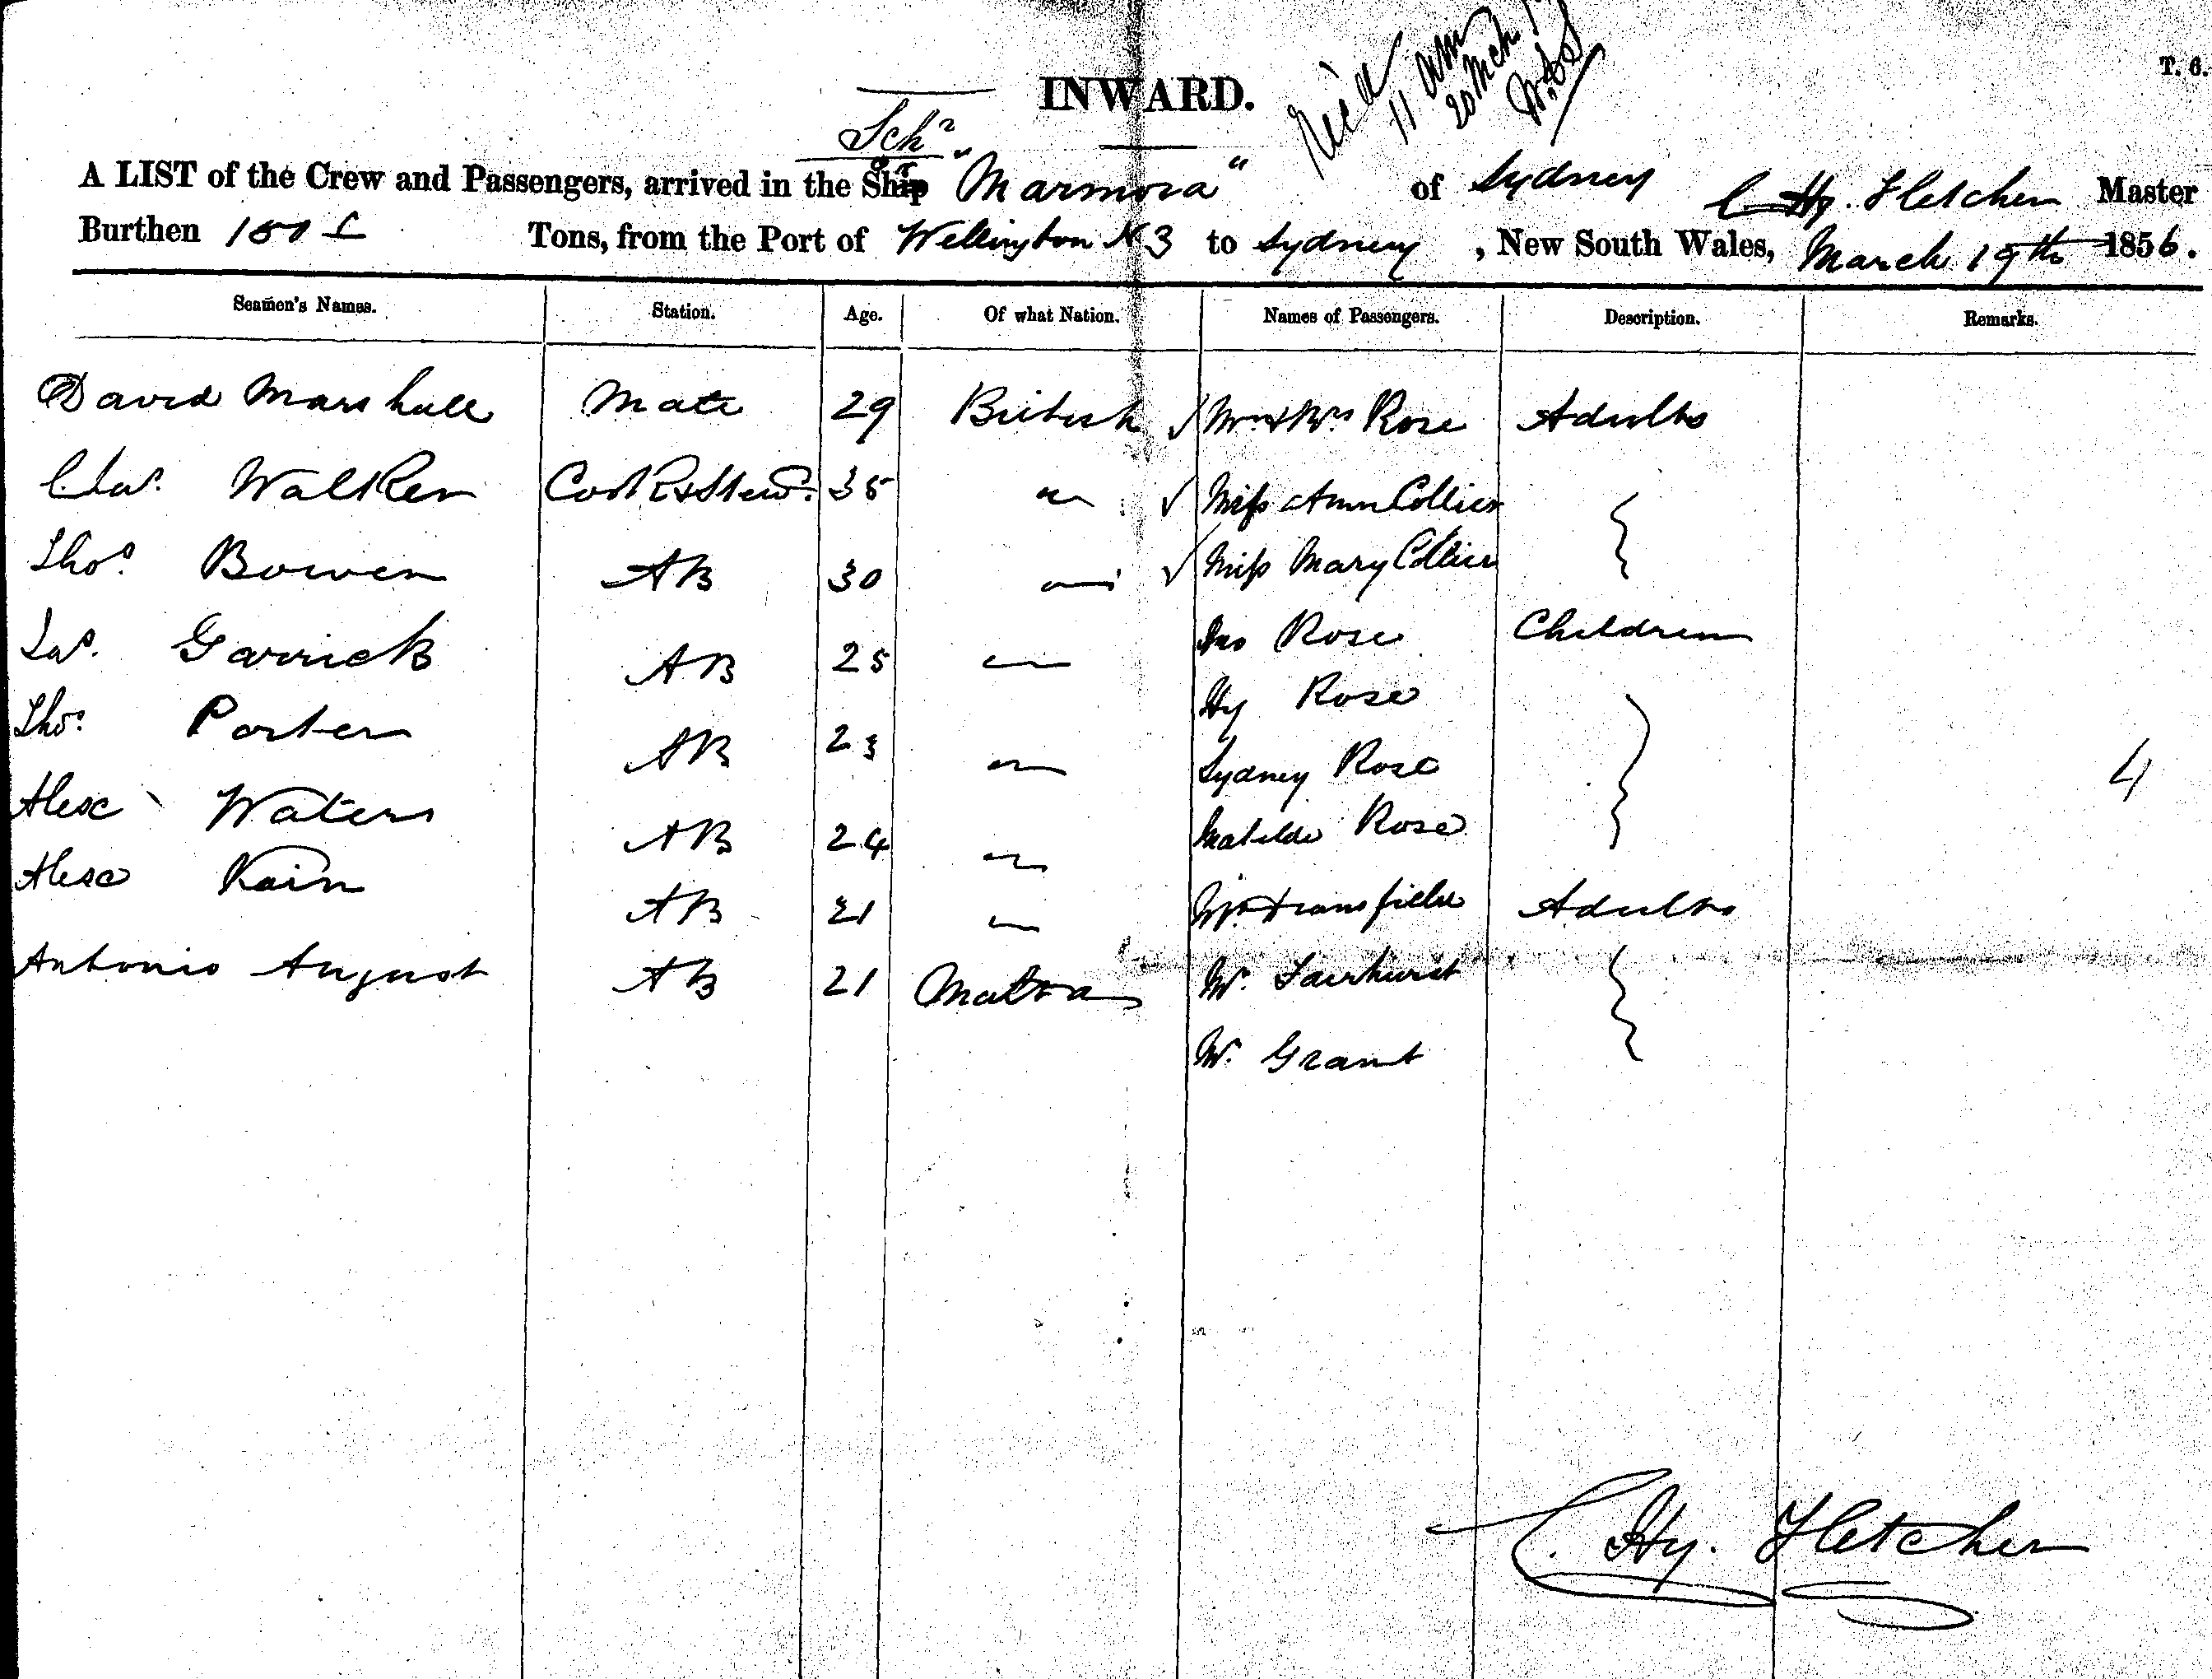 T. 6.
INWARD.
Rec'd
11 am
20 Mch
Schr
A LIST of the Crew and Passengers, arrived in the Ship "Marmora" of Sydney C Hy. Fletcher Master
Burthen Tons, from the Port of Wellington N Z to Sydney, New South Wales, March 19th 1856.
Seamen's Names. Station. Age. Of what Nation. Names of Passengers. Description. Remarks.
David Marshall Mate 29 British √ Mr & Mrs Rose Adults
Chas. Walker Cook & Stewd. 35 " √ Miss Ann Collier
Thos. Bowen AB 30 " √ Miss Mary Collier
Jas. Garrick AB 25 " Jno Rose Children
Thos. Porter AB 23 " Hy Rose
Alex Waters AB 24 " Sydney Rose
Alex Kain AB 21 " Matilda Rose
Antonio August AB 21 Malta Mr Transfield Adults
Mr. Fairhurst
Mr. Grant
4
C. Hy. Fletcher